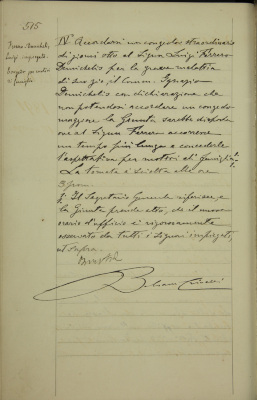 515
Ferrero-Demichelis
Luigi impiegato.
Congedo per motivi
di famiglia
IV. Accordarsi un congedo straordinario
di giorni otto al Signor Luigi Ferrero-
Demichelis per la grave malattia
di suo zio il Comm. Ignazio
Demichelis con dichiarazione che
non potendosi accordare un congedo
maggiore la Giunta sarebbe disposta
ove al Signor Ferrero occorresse
un tempo più lungo a concedere
l'aspettativa per motivi di famiglia.
La tenuta è sciolta alle ore
3 pom.
Il Segretario Generale riferisce, e
la Giunta prende atto, che il nuovo
orario d'ufficio è rigorosamente
osservato da tutti i Signori impiegati,
ut supra.